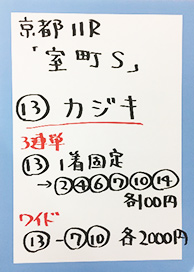 京都11R
「室町S」
⑬ カジキ
3連単
⑬ 1着固定
→②④⑥⑦⑩⑭
各100円
ワイド
⑬-⑦⑩ 各2000円